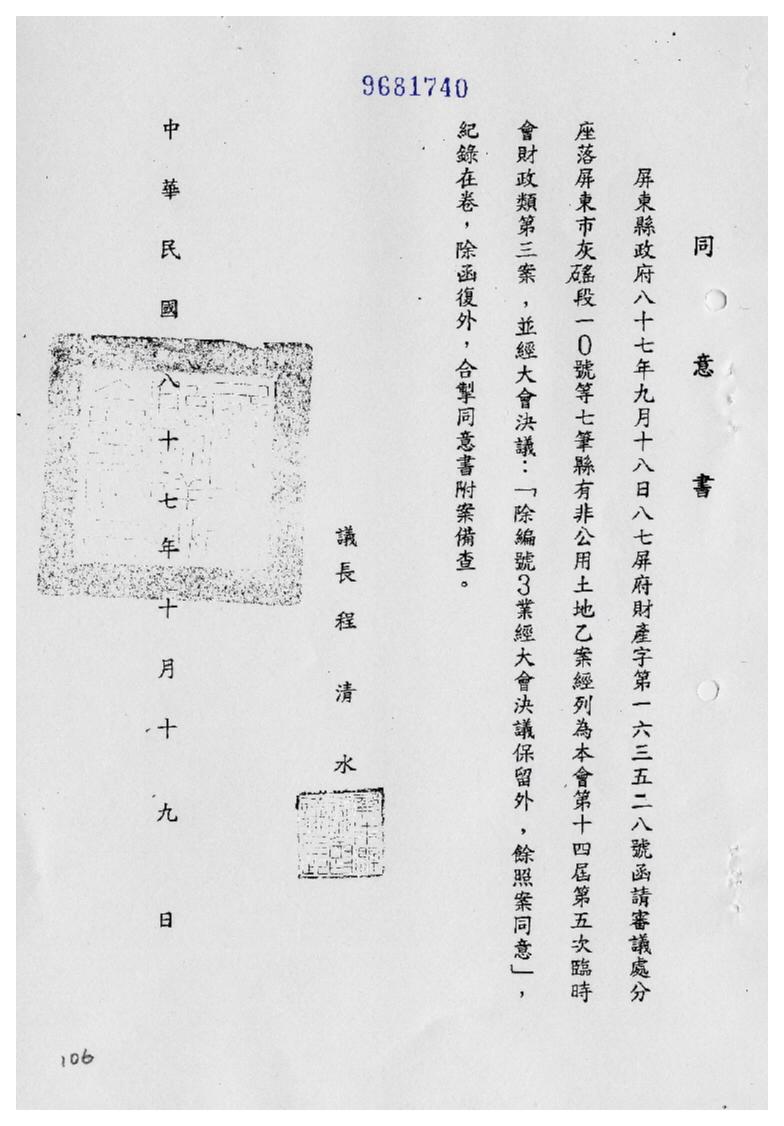 9681740
同意書
屏東縣政府八十七年九月十八日八七屏府財產字第一六三五二八號函請審議處分
座落屏東市灰磘段一0號等七筆縣有非公用土地乙案經列為本會第十四屆第五次臨時
會財政類第三案，並經大會決議：「除編號3業經大會決議保留外，餘照案同意」，
紀錄在卷，除函復外，合掣同意書附案備查。
議長程清水
中華民國八十七年十月十九日
106